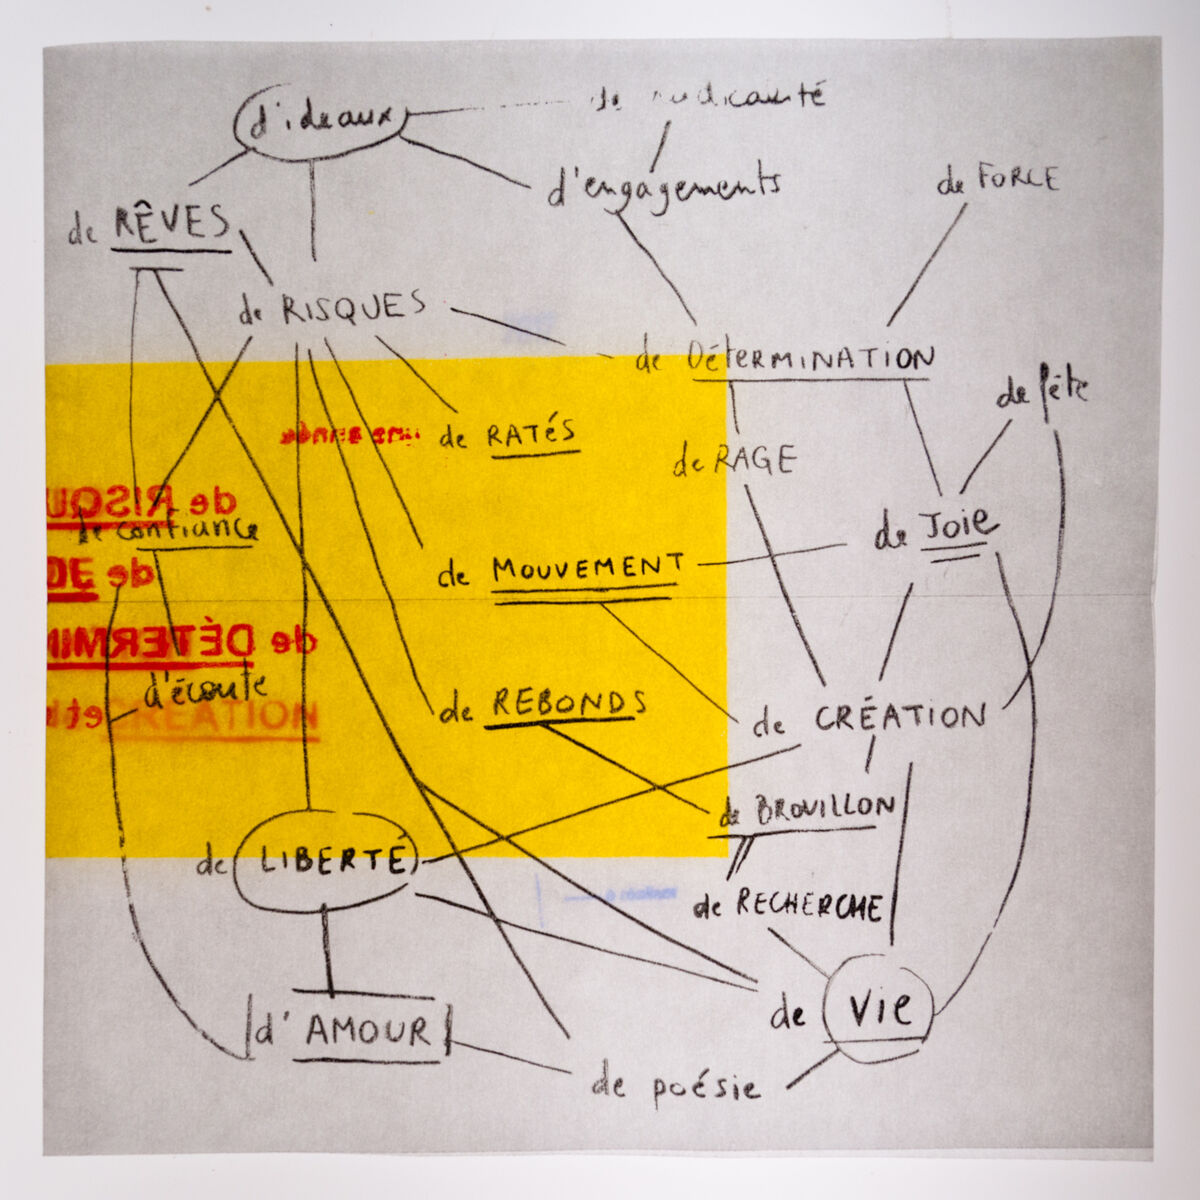 d'ideaux
de radicauté
d'engagements
de FORCE
de RÊVES
de RISQUES
de DéTERMINATION
de fête
une année
de RATéS
de RAGE
de RISQU
de confiance
de JOIE
de DE
de MOUVEMENT
de DÉTERMIN
d'écoute
de REBONDS
et de CRÉATION
de CRÉATION
de BROUILLON
de LIBERTÉ
de RECHERCHE
de VIE
d'AMOUR
de poésie